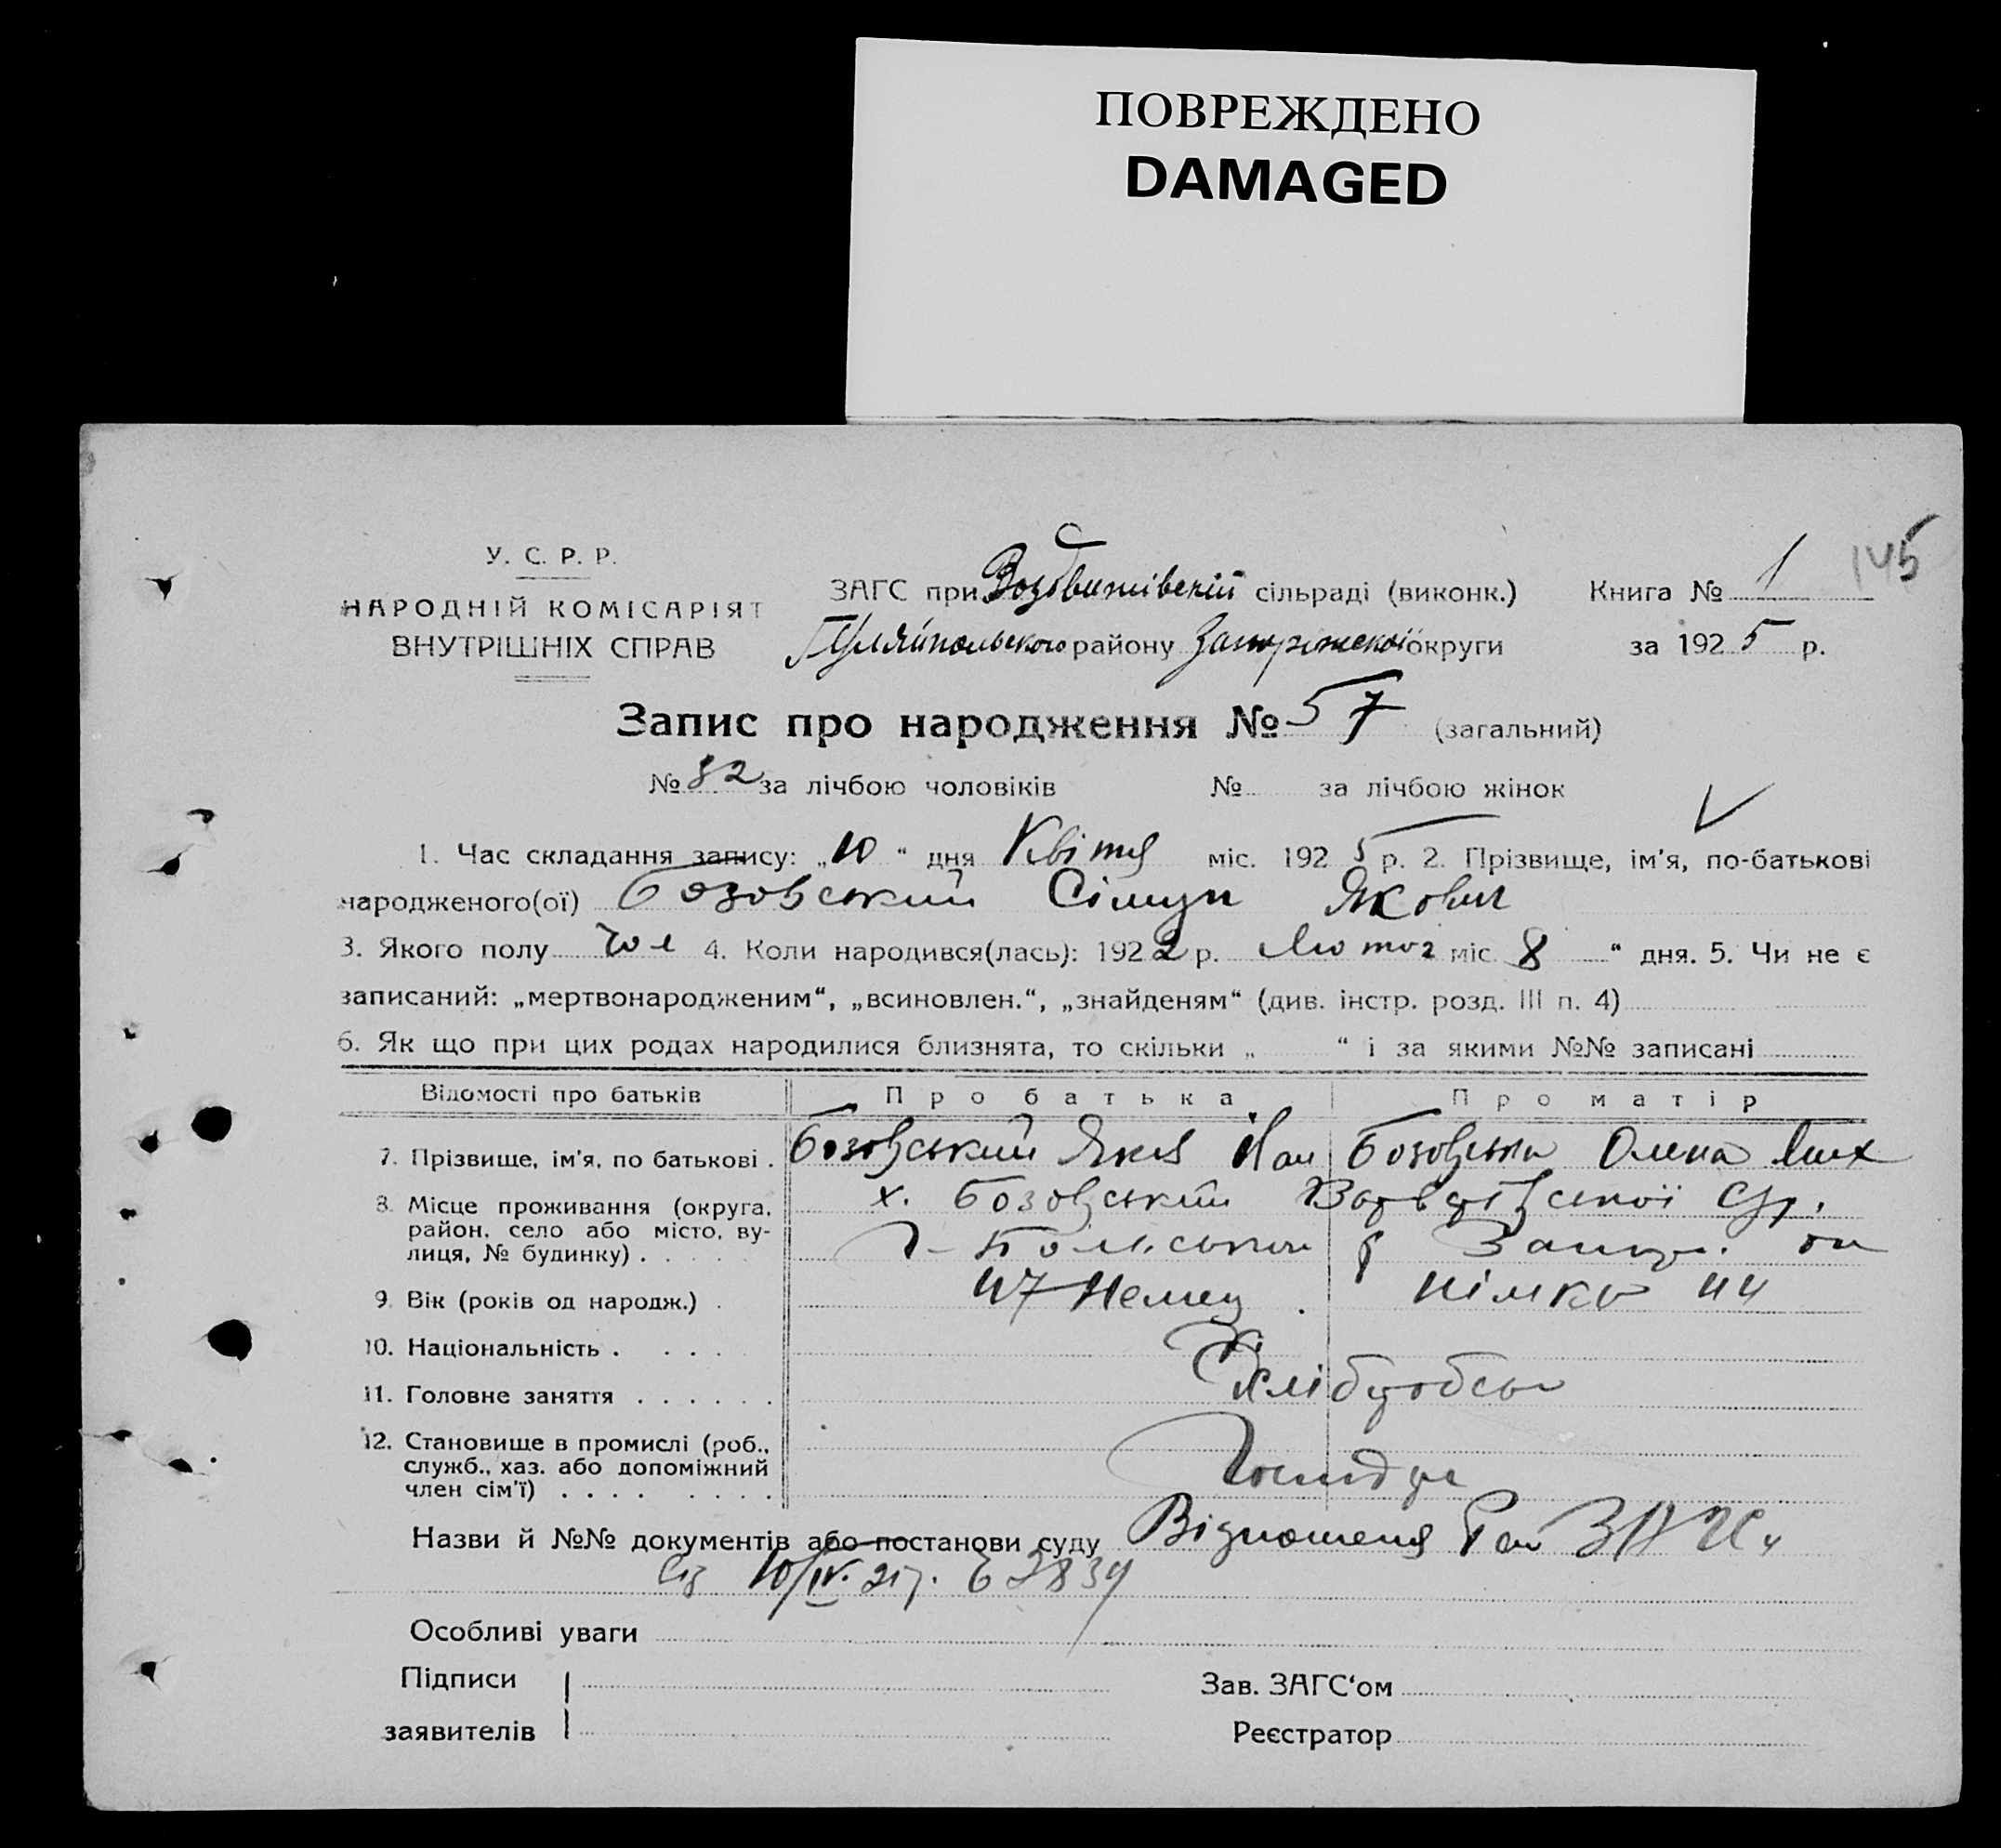 ПОВРЕЖДЕНО
DAMAGED
145
У. С. Р. Р.
НАРОДНІЙ КОМІСАРІЯТ
ВНУТРІШНІХ СПРАВ
ЗАГС при Воздвижівській сільраді (виконк.) Книга № 1
Гуляйпольського району Запоріжської округи за 1925 р.
Запис про народження № 57 (загальний)
№ 32 за лічбою чоловіків № за лічбою жінок
1. Час складання запису: „10“ дня Квітня міс. 1925 р. 2. Прізвище, ім'я, по-батькові
народженого(ої) Бозовський Сімун Якович
3. Якого полу чол 4. Коли народився(лась): 1922 р. Лютог міс. 8 “ дня. 5. Чи не є
записаний: „мертвонародженим“, „всиновлен.“, „знайденям“ (див. інстр. розд. III п. 4)
6. Як що при цих родах народилися близнята, то скільки „ “ і за якими №№ записані
Відомості про батьків Про батька Про матір
7. Прізвище, ім'я, по батькові . Бозовський Яків Йван Бозовська Олена
8. Місце проживання (округа, район, село або місто, вулиця, № будинку) . х. Бозовський
Г-Польського р Запор. ок
9. Вік (років од народж.) . 47 Немец німка 44
10. Національність .
11. Головне заняття . Хлібороб
12. Становище в промислі (роб., служб., хаз. або допоміжний член сім'ї) . Господар
Назви й №№ документів або постанови суду Відношеня Рай ЗАГСу
від 10/IV. 25 р. № 2839
Особливі уваги
Підписи Зав. ЗАГС'ом
заявителів Реєстратор